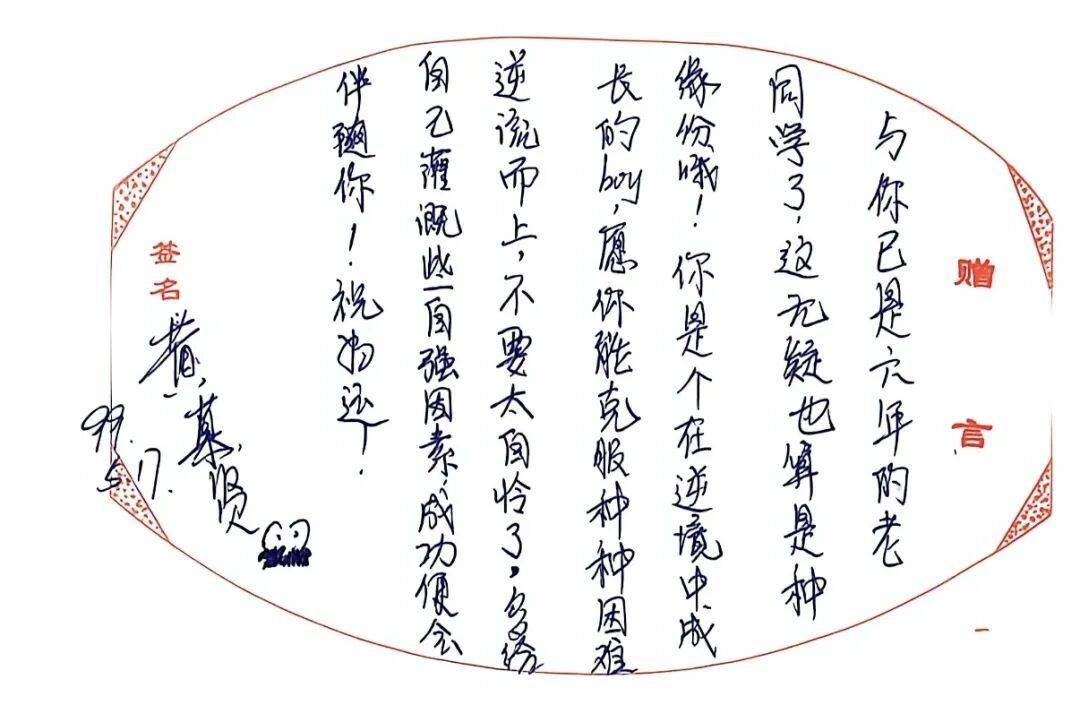 赠言
与你已是六年的老
同学了,这无疑也算是种
缘份哦!你是个在逆境中成
长的boy,愿你能克服种种困难
逆流而上,不要太自怜了,多给
自己灌溉些自强因素,成功便会
伴随你!祝好运!
签名
慕贤
99.
5.17.